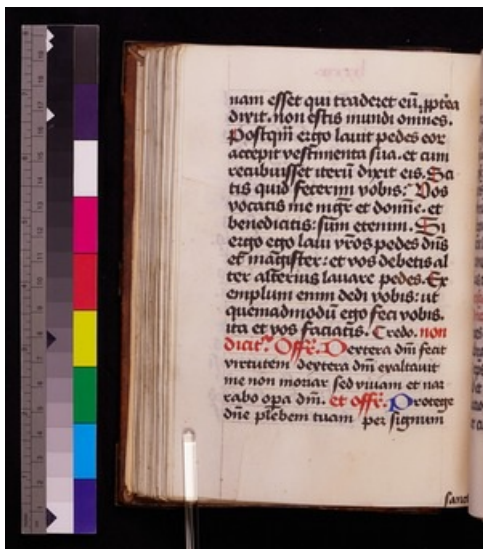 nam esset qui traderet eū, ꝓpt̄ea
dixit. non estis mundi omnes.
Postqm̄ ergo lauit pedes eor
accepit vestimenta sua. et cum
recubuisset iterū dixit eis. Sci
tis quid fecerim vobis? Vos
vocatis me mgr̄ et domīe. et
benedicitis: sum etenim. Si
ergo ego laui vr̄os pedes dn̄s
et magister: et vos debetis al
ter alterius lauare pedes. Ex
emplum enim dedi vobis: ut
quemadmodū ego feci vobis.
ita et vos faciatis. Credo. non
dicit. Offr̄. Dextera dn̄i fecit
virtutem dextera dn̄i exaltauit
me non moriar sed viuam et nar
rabo opa dn̄i. et offr̄. Protege
dn̄e plebem tuam per signum